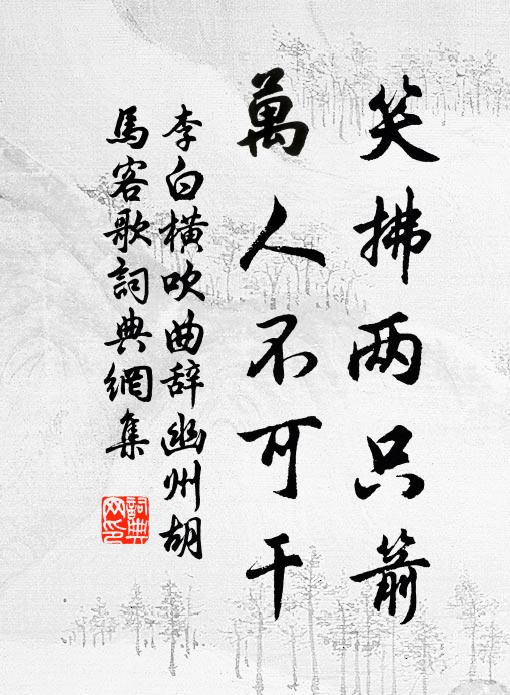 笑拂两只箭
萬人不可干
李白橫吹曲辞幽州胡
馬客歌詞典網集
詞典
网印